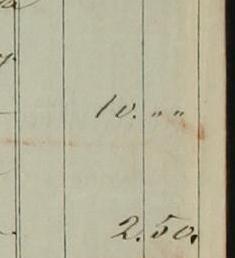 10. „ „
2.50.